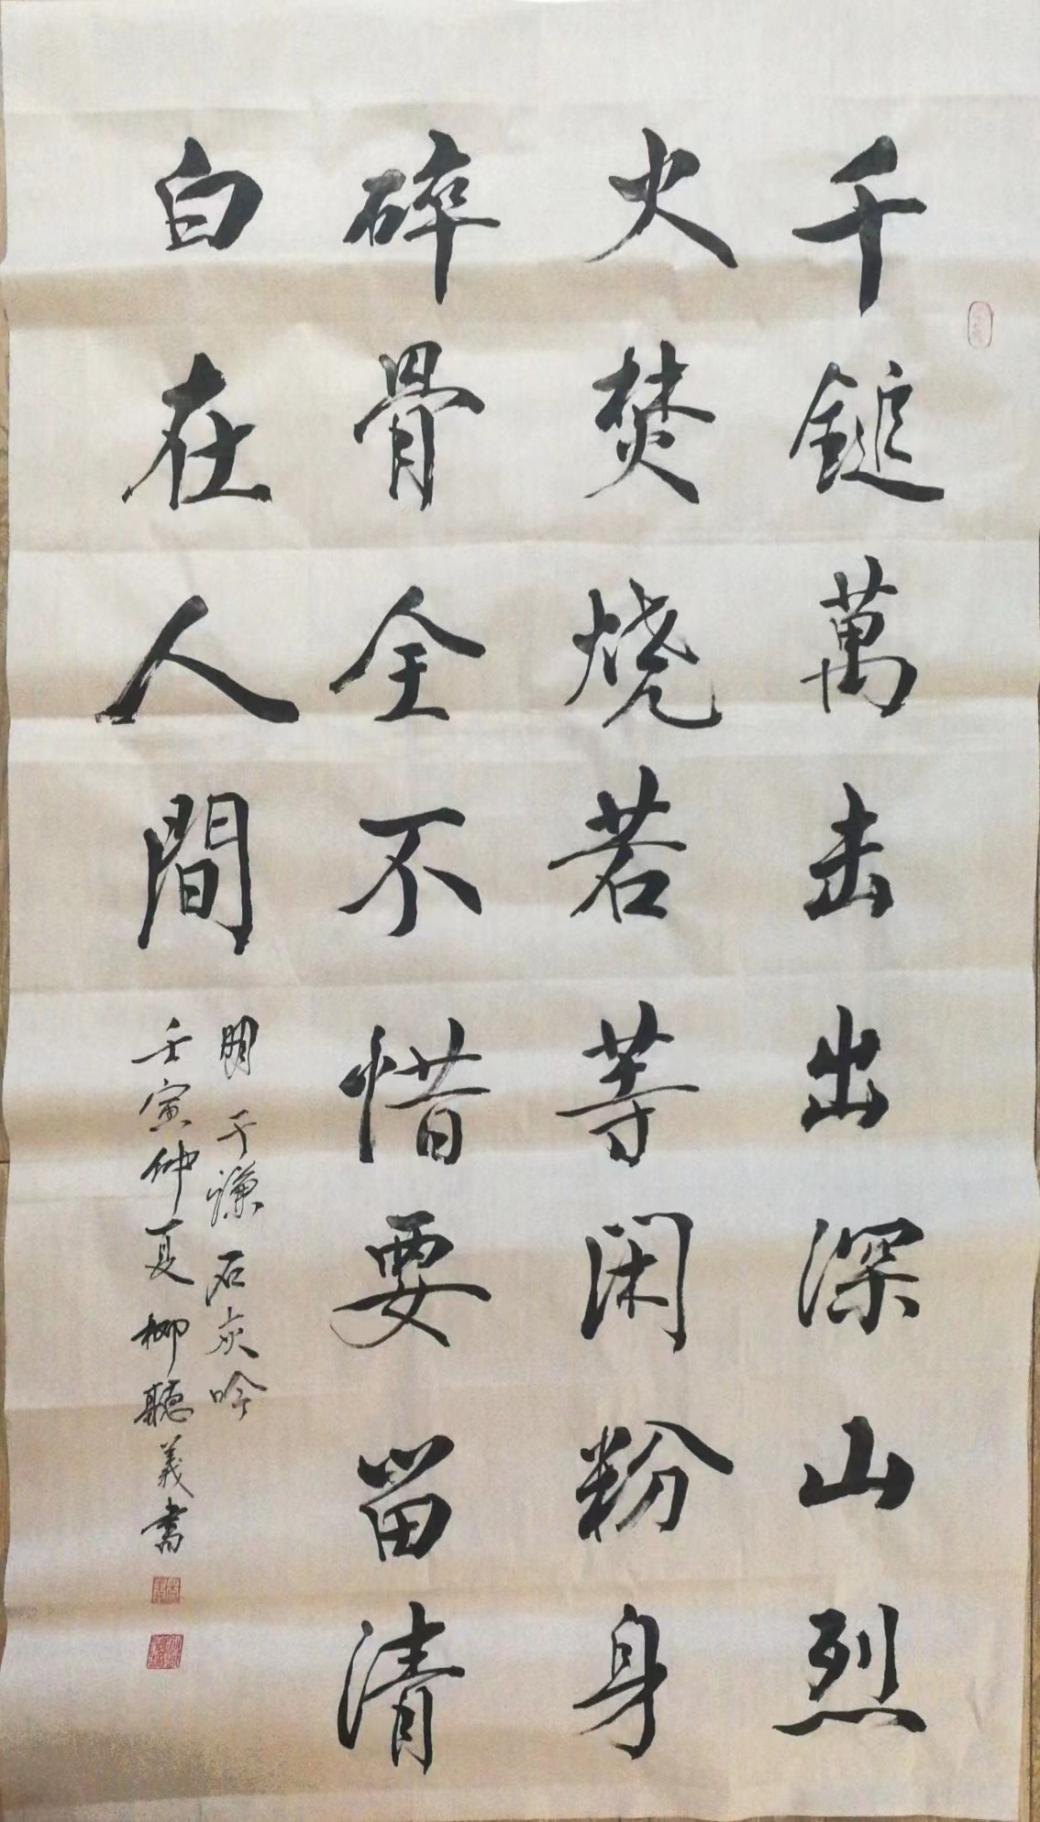 千鎚萬击出深山烈
火焚烧若等闲粉身
碎骨全不惜要留清
白在人間
明于謙石灰吟
壬寅仲夏柳聽義書